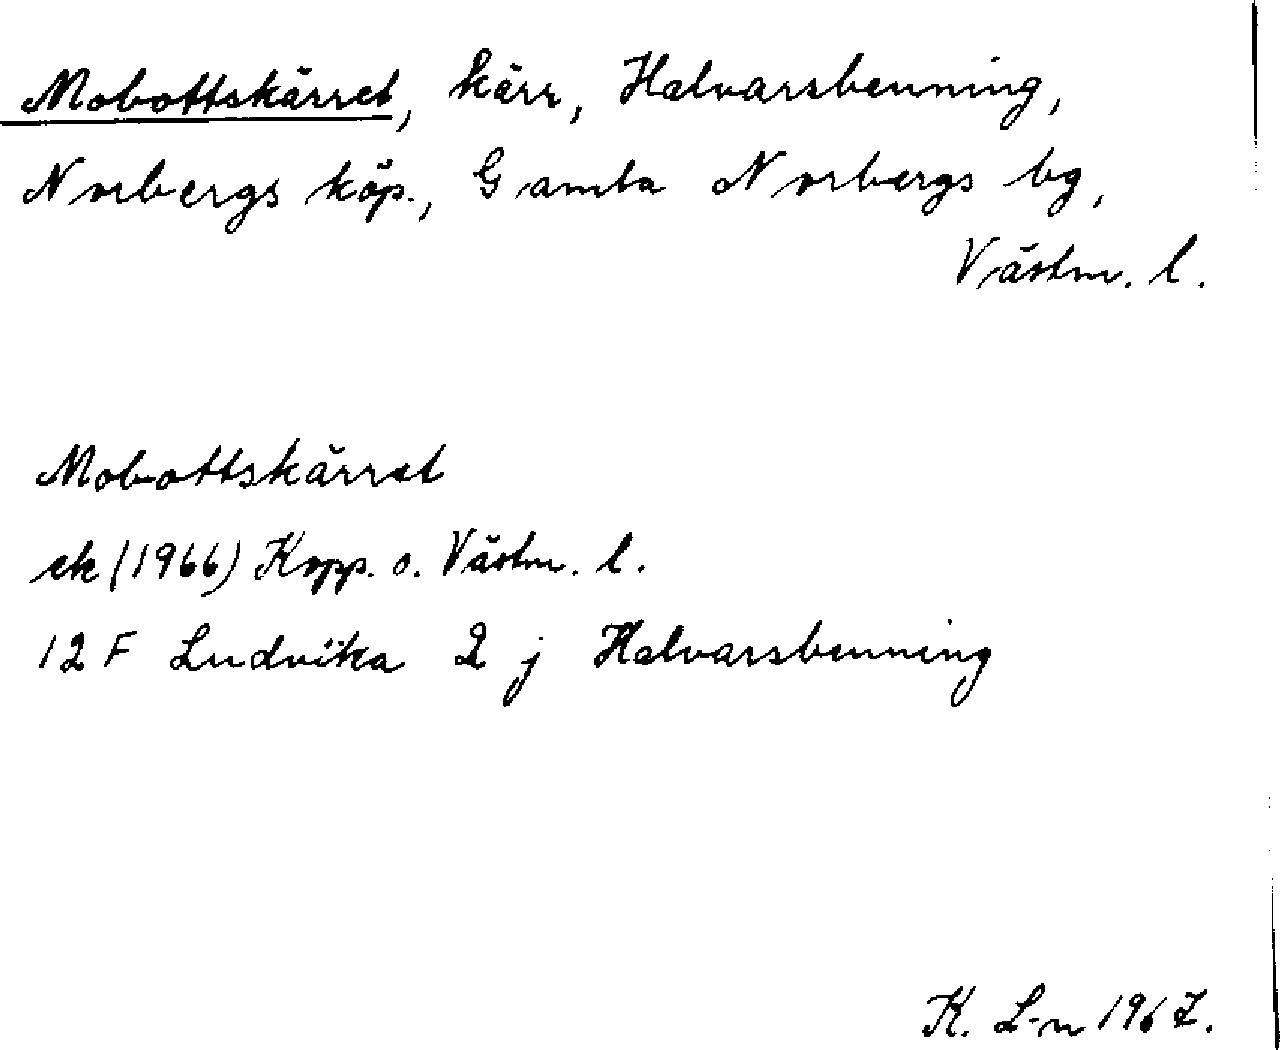 Mobottskärret, kärr, Halvarsbenning,
Norbergs köp., Gamla Norbergs bg,
Västm. l.
Mobottskärret
ek (1966) Kopp. o. Västm. l.
12 F Ludvika 2 j Halvarsbenning
K. L-n 1967.